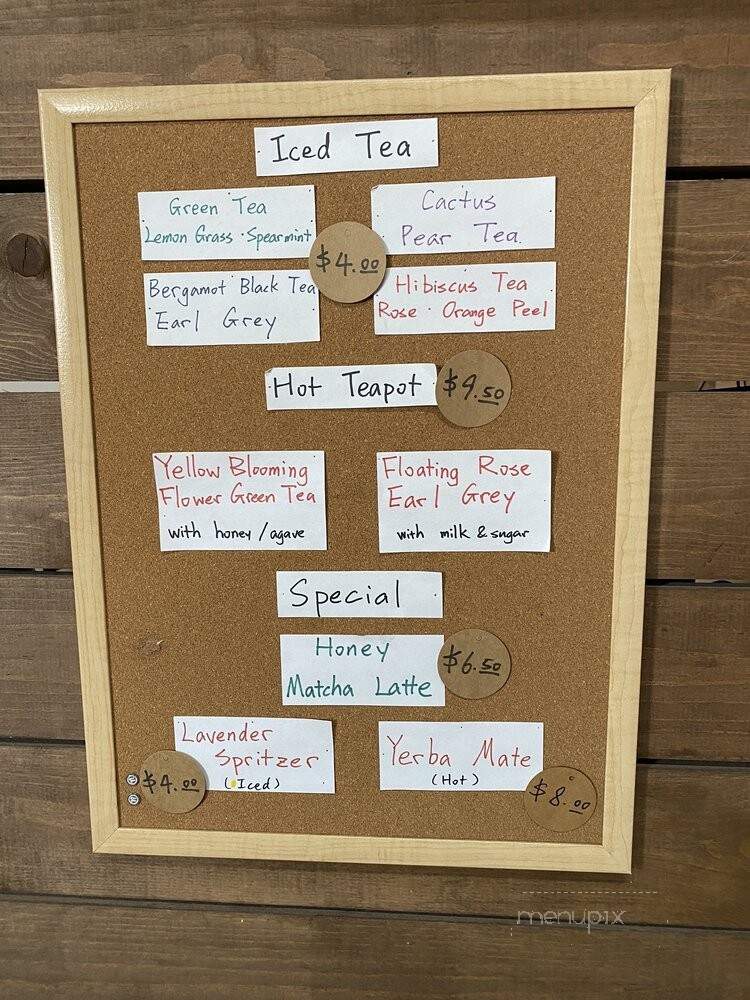 Iced Tea
Green Tea
Lemon Grass · Spearmint
Cactus
Pear Tea
$4.00
Bergamot Black Tea
Earl Grey
Hibiscus Tea
Rose · Orange Peel
Hot Teapot
$9.50
Yellow Blooming
Flower Green Tea
with honey/agave
Floating Rose
Earl Grey
with milk & sugar
Special
Honey
Matcha Latte
$6.50
Lavender
Spritzer
(Iced)
$4.00
Yerba Mate
(Hot)
$8.00
menupix